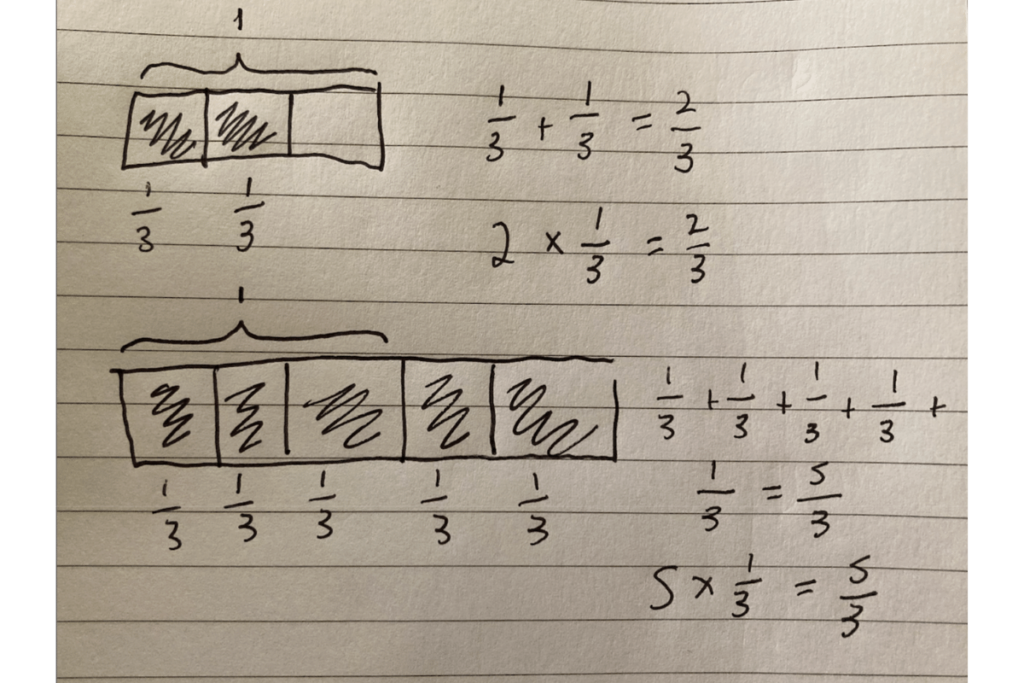 1
1/3 1/3
1/3 + 1/3 = 2/3
2 × 1/3 = 2/3
1
1/3 1/3 1/3 1/3 1/3
1/3 + 1/3 + 1/3 + 1/3 +
1/3 = 5/3
5 × 1/3 = 5/3